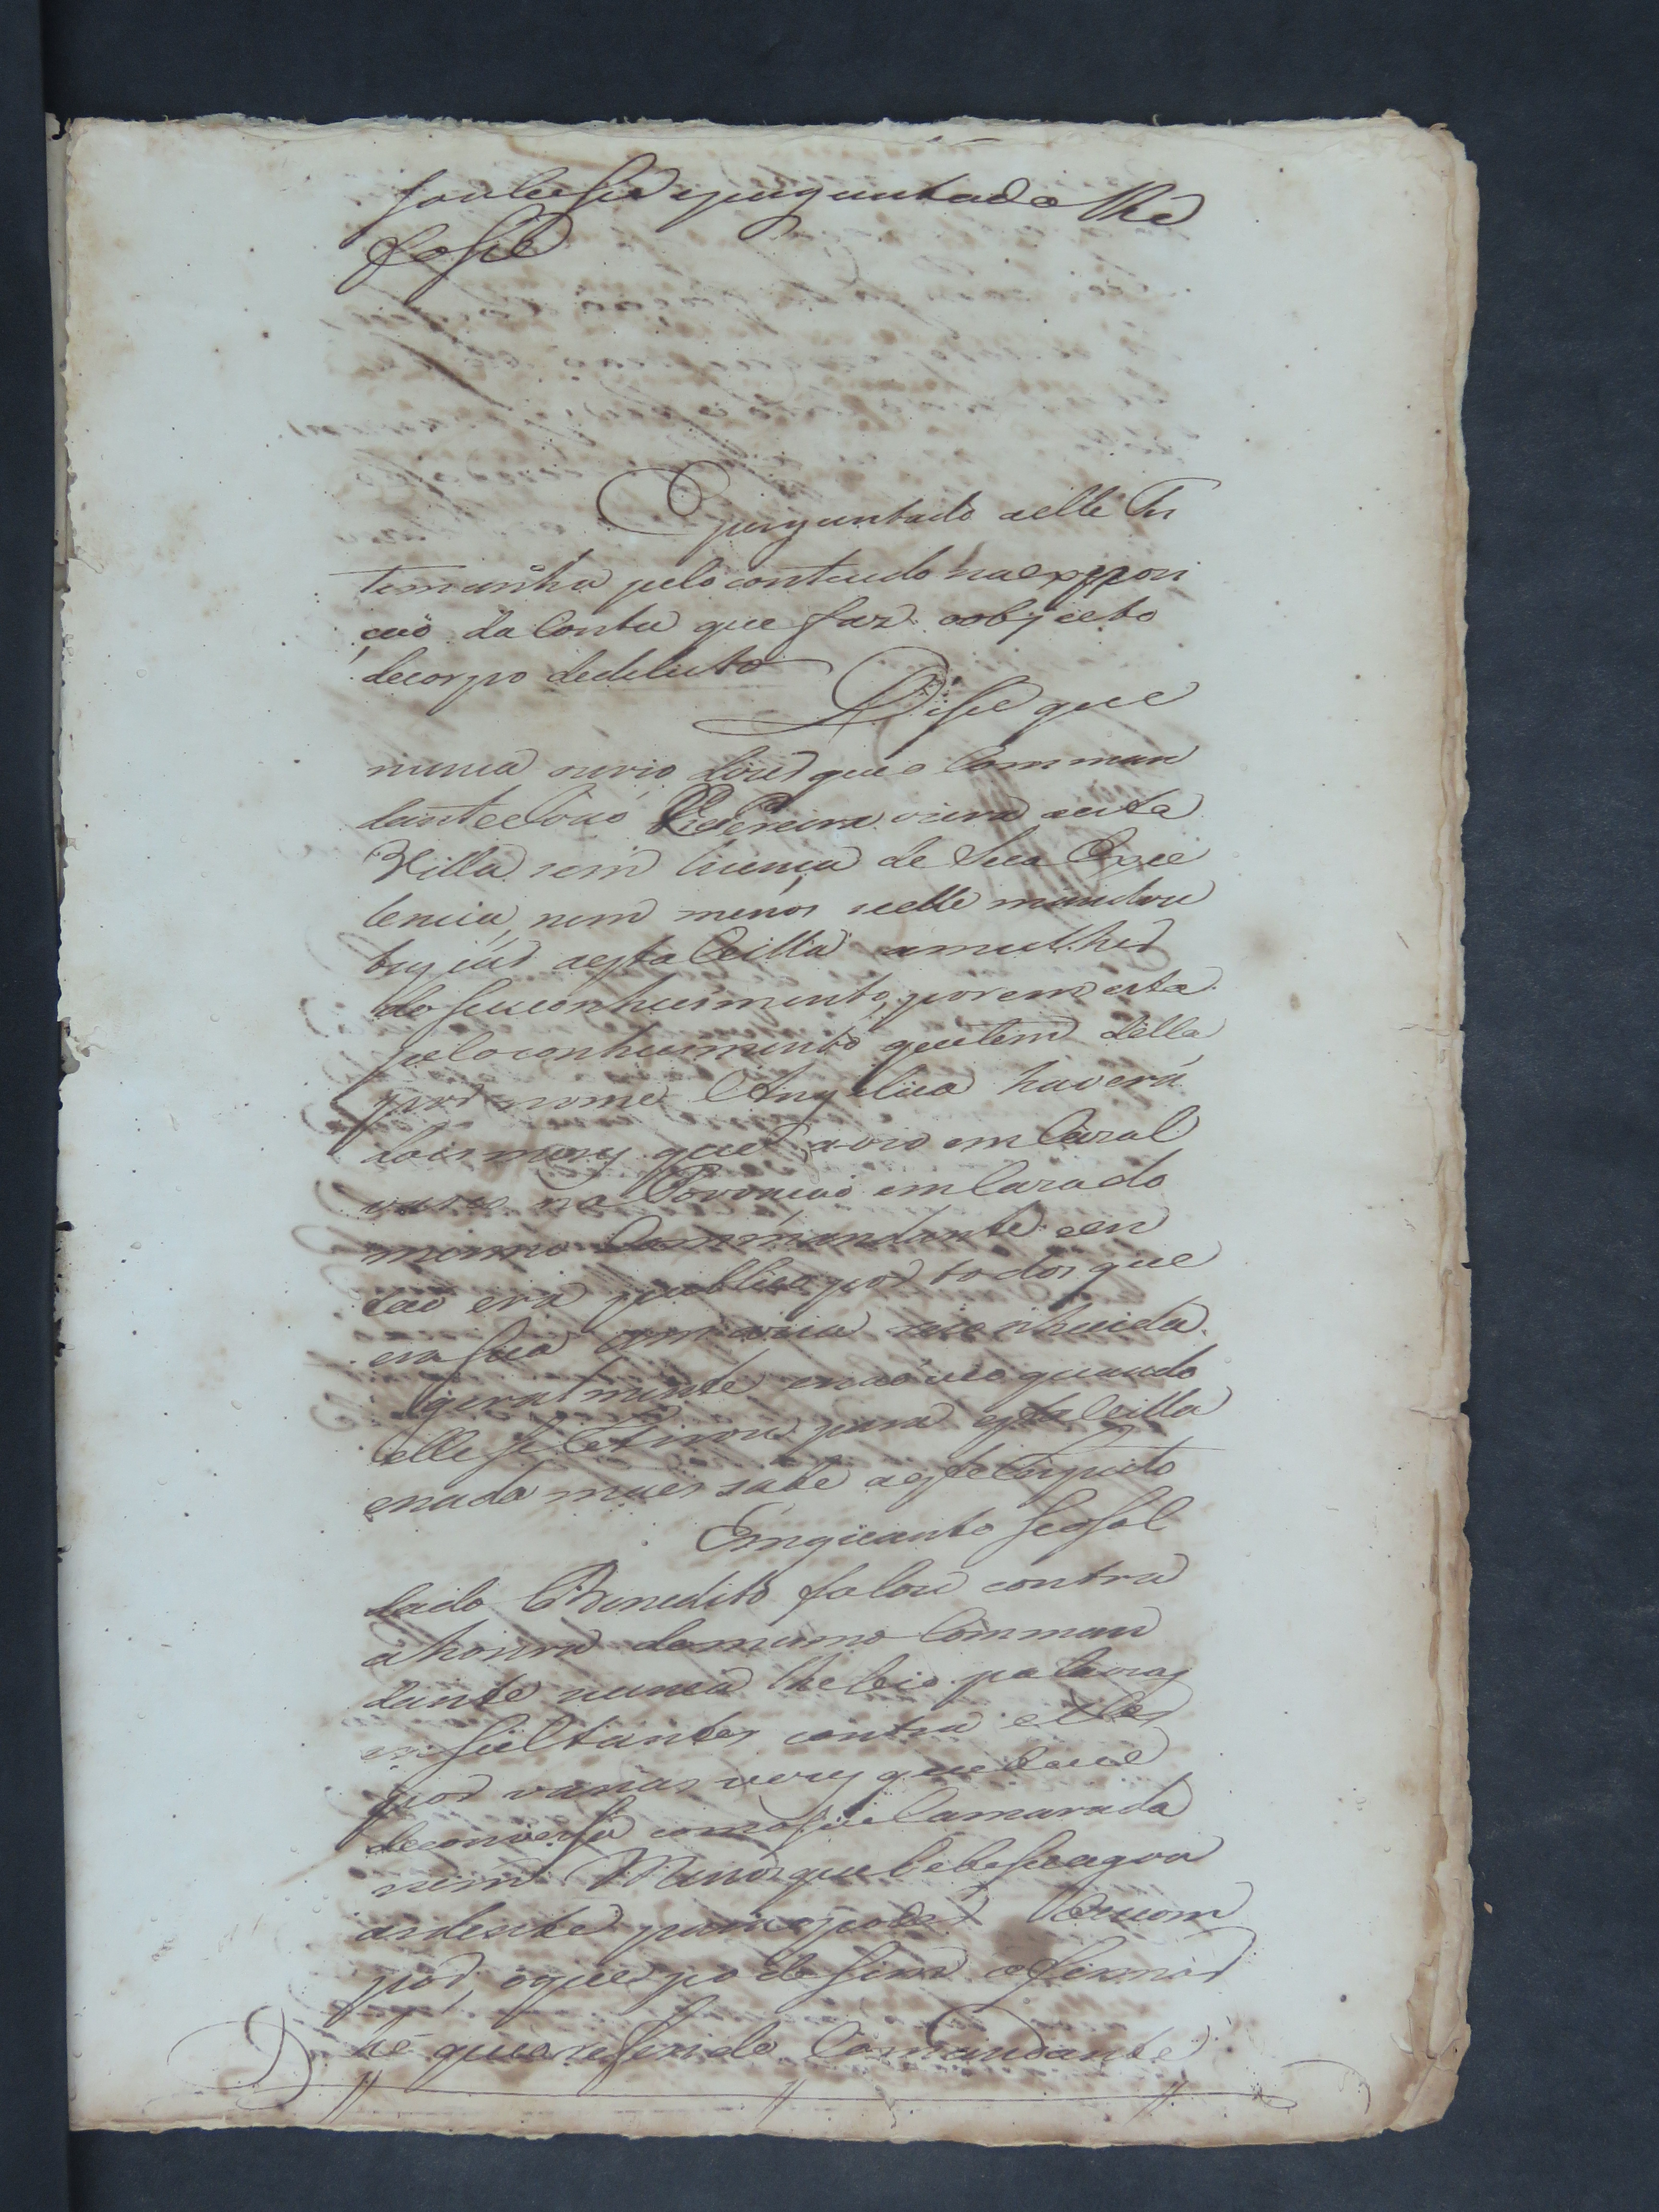 soubesse e perguntado lhe
fosse
E perguntado a elle Tes
temunha pelo contiudo na exposi
ção da Conta que faz o objecto
de corpo de delicto
Disse que
nunca ouvio dizer que o Comman
dante João Pereira viera a esta
Villa sem licença de Sua Exce
lencia, nem menos se elle mandou
buscar a esta Villa a mulher
do seu conhecimento, porem esta
pelo conhecimento que tem della
por nome Angelica haverá
dois mezes que a vio em Cazal
na Povoação em Caza do
mesmo Commandante e en
tão era publico por todos que
era sua amazia reconhecida
geralmente e não veio quando
elle se retirou para esta Villa
e nada mais sabe a este respeito
Emquanto se o Sol
dado Benedito falou contra
a honra do mesmo Comman
dante nunca lhe veio palavras
insultantes contra elle
por varias vezes que teve
de conversa como seu Camarada
nem Menos que bebesse agoa
ardente para poder
por, o que pode sim afirmar
hé que o referido Comandante